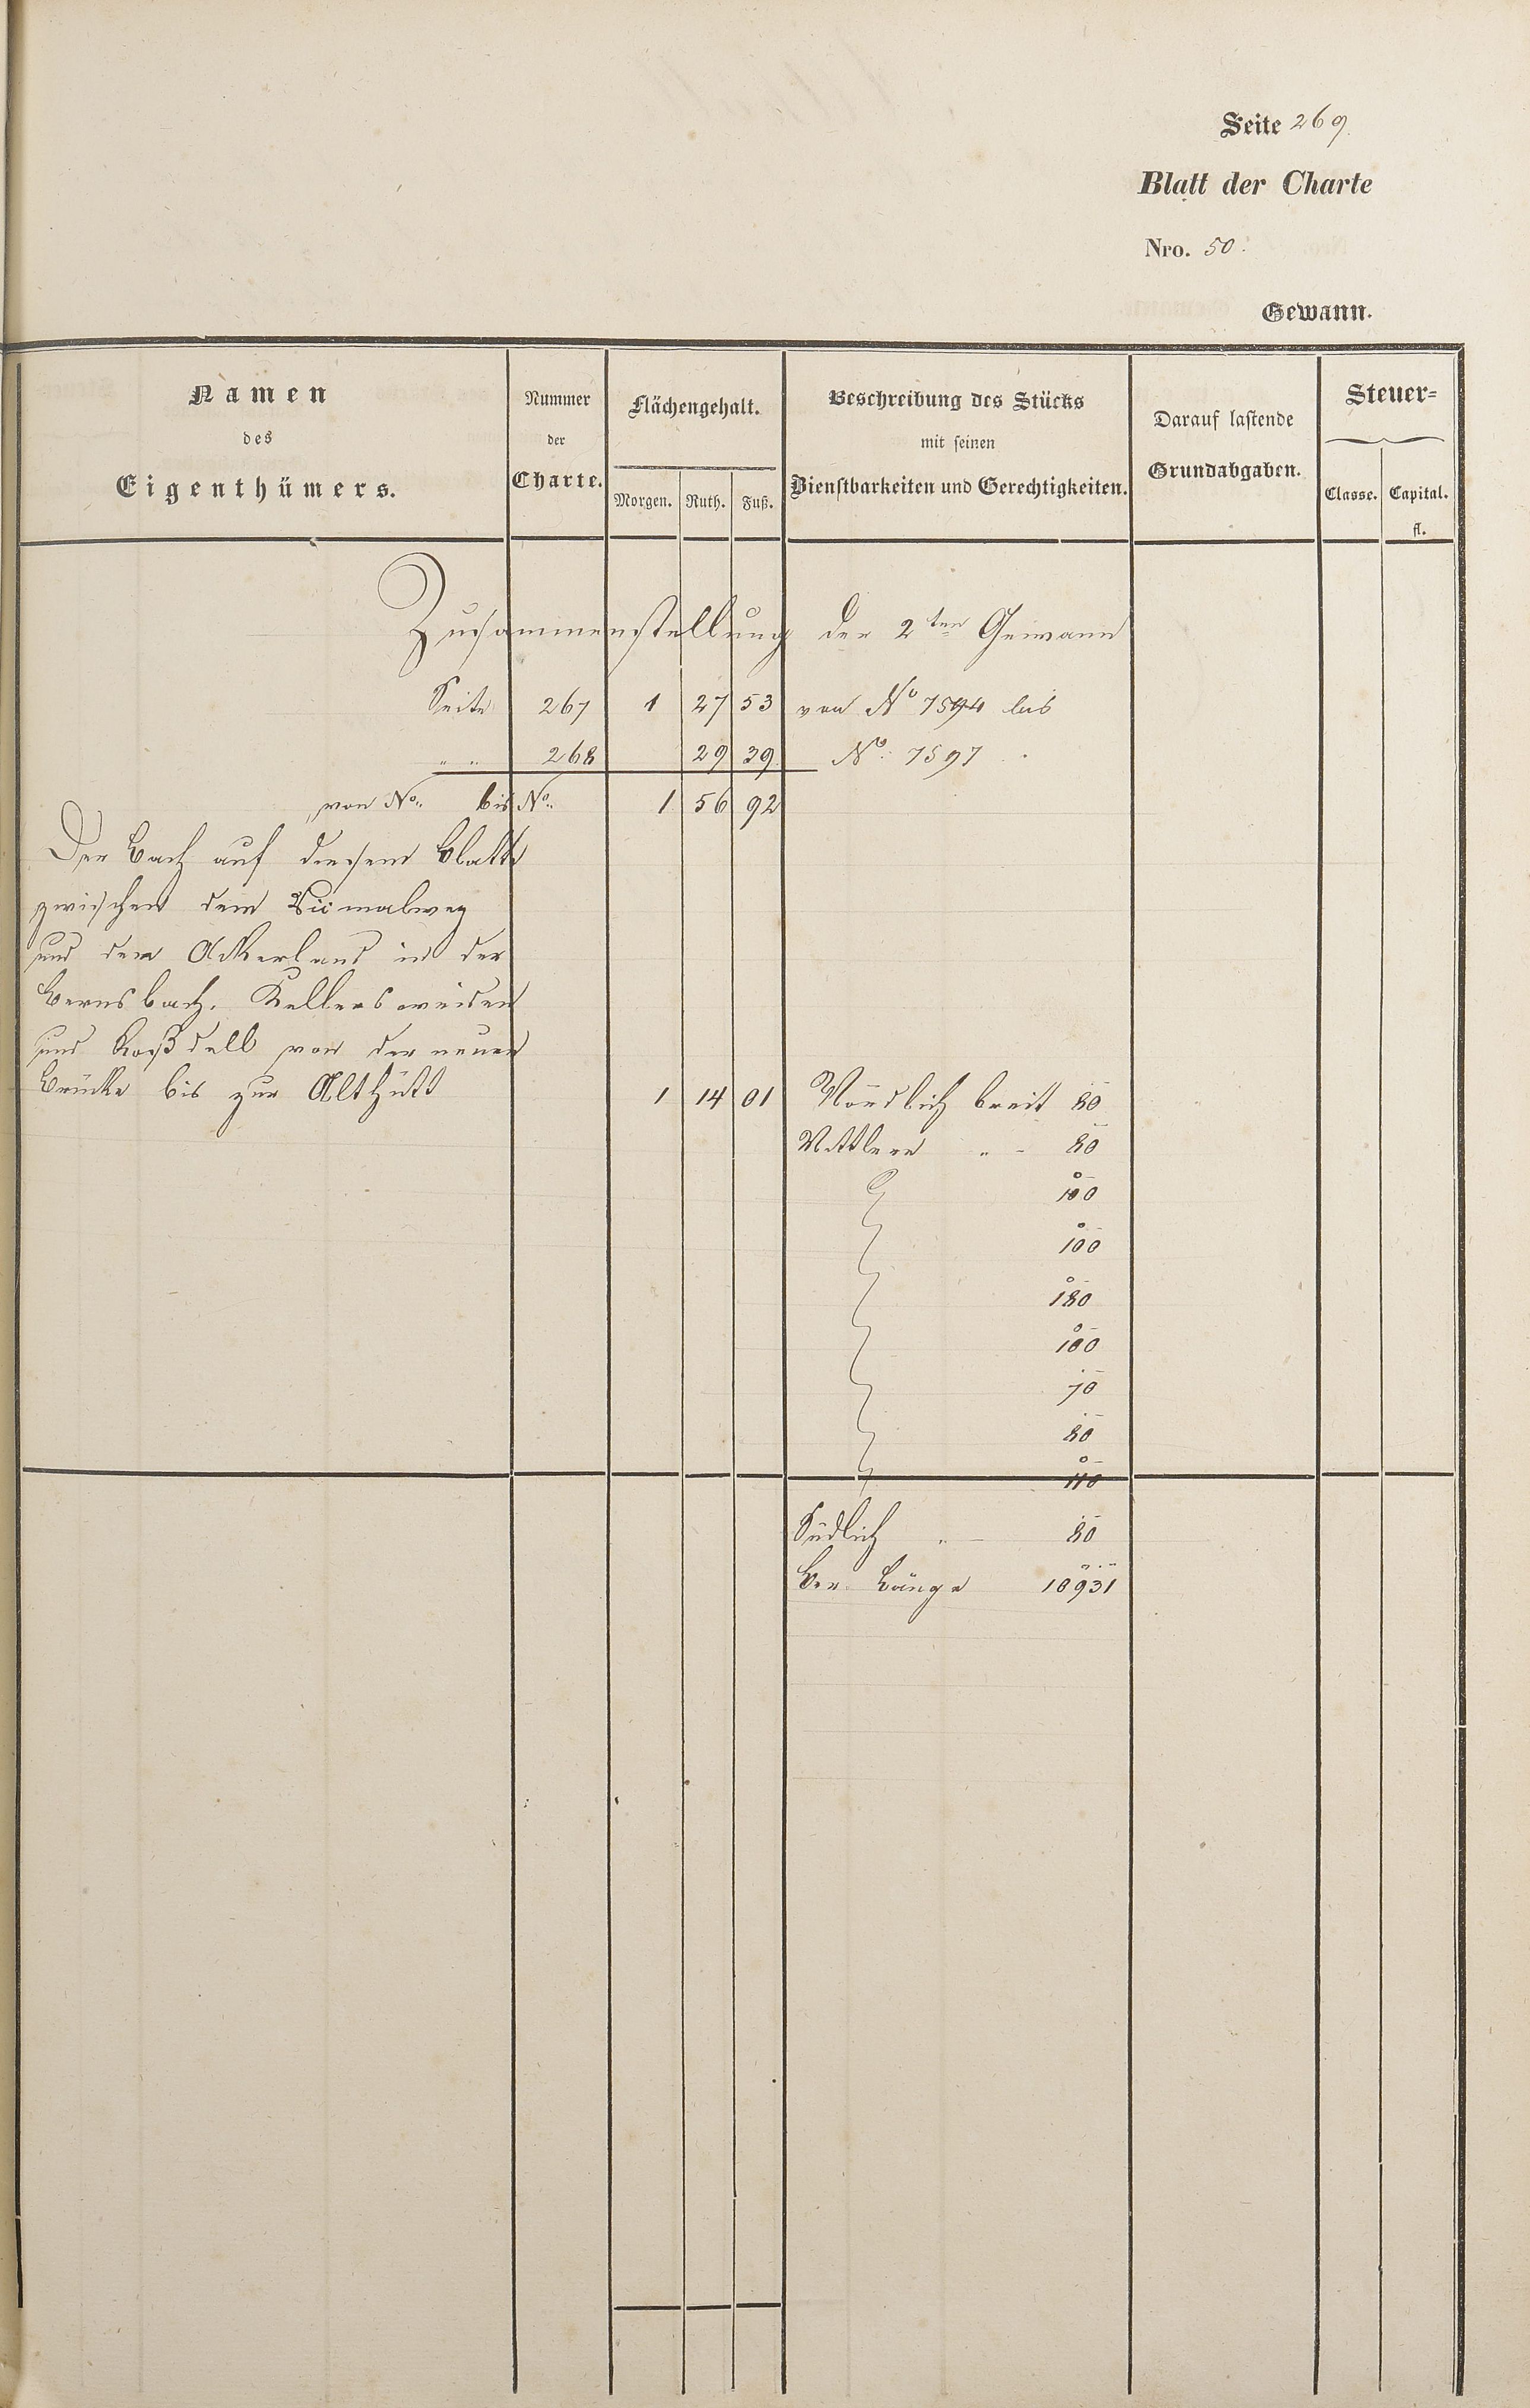 Seite 269.
Blatt der Charte
Nro. 50.
Gewann.
Namen des Eigenthümers.
Nummer der Charte.
Flächengehalt.
Morgen. Ruth. Fuß.
Beschreibung des Stücks mit seinen Dienstbarkeiten und Gerechtigkeiten.
Darauf lastende Grundabgaben.
Steuer=
Classe. Capital. fl.
Zusammenstellung der 2ten Gewann
Seite 267 1 27 53 von No 7594 bis
" " 268 29 39 No. 7597
von No. bis No. 1 56 92
Der Bach auf diesem Blatt
zwischen dem Vicinalweg
und dem Ackerland in der
Bernsbach, Kellersweiden
und Roßdell von der neuen
Brücke bis zur Althütt 1 14 01 Nördlich breit 80
Mittlere " - 80
100
100
180
100
70
80
110
Südlich " - 80
Ber. Länge 10931